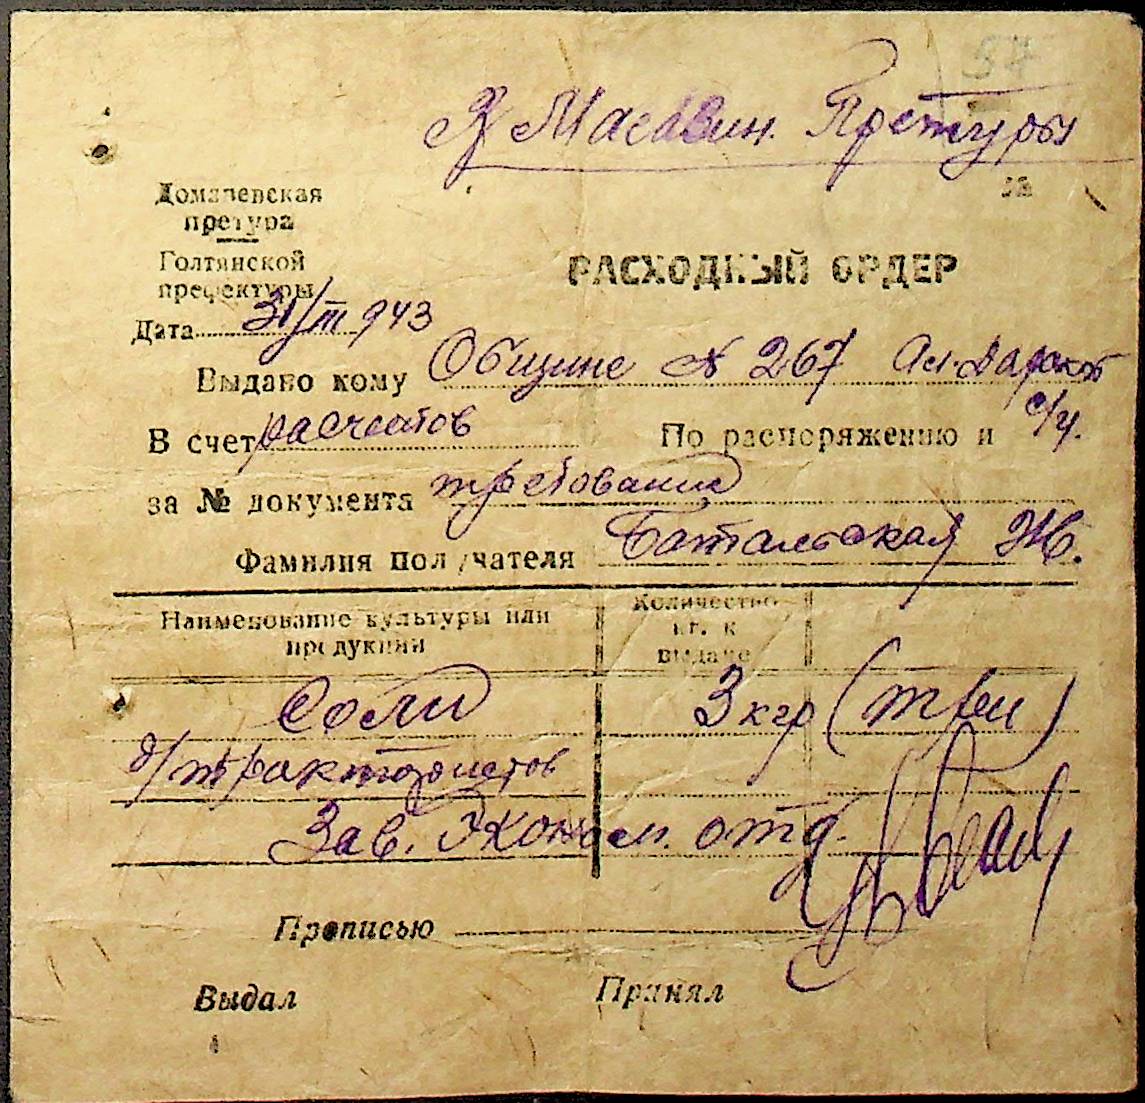 57
Маг. Претуры
№
Доманевская
претура
Голтянской
префектуры
РАСХОДНЫЙ ОРДЕР
Дата 31/III 943
Выдано кому Общине № 267
с/у.
В счет расчетов По распоряжению и
за № документа требование
Фамилия получателя Ж.
Наименование культуры или продукции
Количество кг. к выдаче
Соли 3 кгр (три)
д/трактористов
Зав. Эконом. отд.
Прописью
Выдал Принял